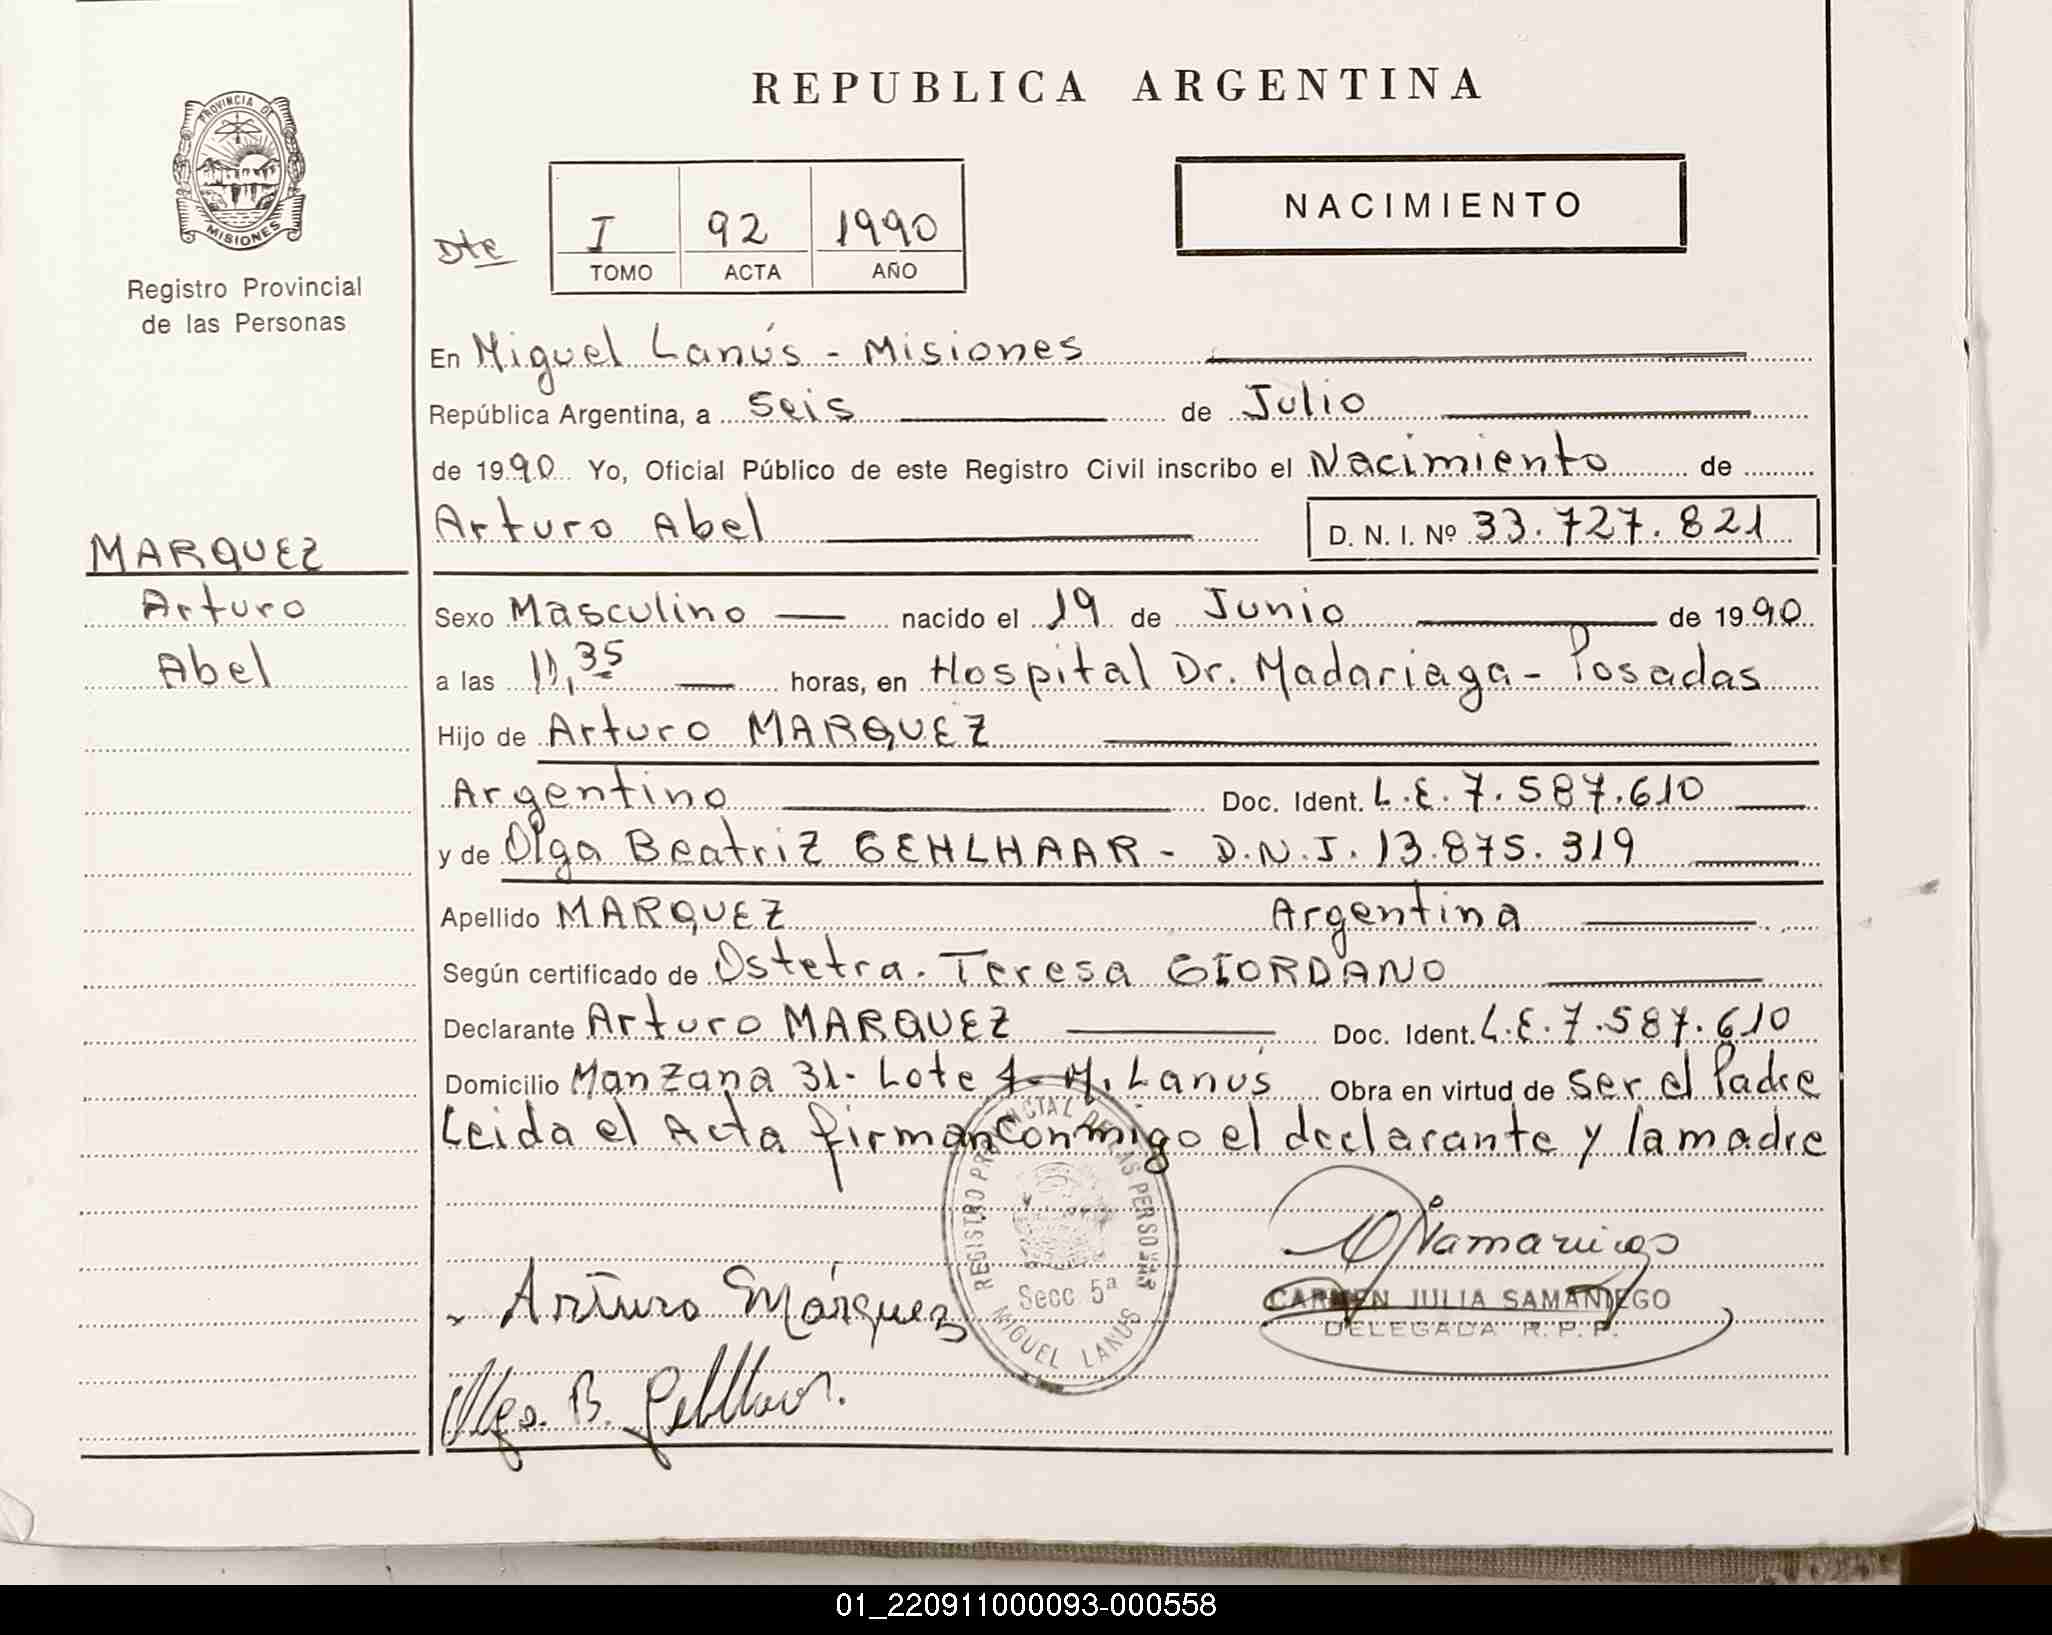 REPUBLICA ARGENTINA
PROVINCIA DE
MISIONES
Registro Provincial
de las Personas
Dte
I 92 1990
TOMO ACTA AÑO
NACIMIENTO
En Miguel Lanús - Misiones
República Argentina, a seis de Julio
de 1990 Yo, Oficial Público de este Registro Civil inscribo el Nacimiento de
Arturo Abel D. N. I. Nº 33.727.821
MARQUEZ
Arturo
Abel
Sexo Masculino nacido el 19 de Junio de 1990
a las 11,35 horas, en Hospital Dr. Madariaga - Posadas
Hijo de Arturo MARQUEZ
Argentino Doc. Ident. L.E. 7.587.610
y de Olga Beatriz GEHLHAAR - D.N.I. 13.875.319
Apellido MARQUEZ Argentina
Según certificado de Ostetra. Teresa GIORDANO
Declarante Arturo MARQUEZ Doc. Ident. L.E. 7.587.610
Domicilio Manzana 31- Lote 4- M. Lanús Obra en virtud de ser el Padre
Leida el Acta firman conmigo el declarante y la madre
REGISTRO PROVINCIAL DE LAS PERSONAS
Secc. 5ª
MIGUEL LANUS
Arturo Márquez
CARMEN JULIA SAMANIEGO
DELEGADA R.P.P.
Olga. B. Gehlhaar.
01_220911000093-000558